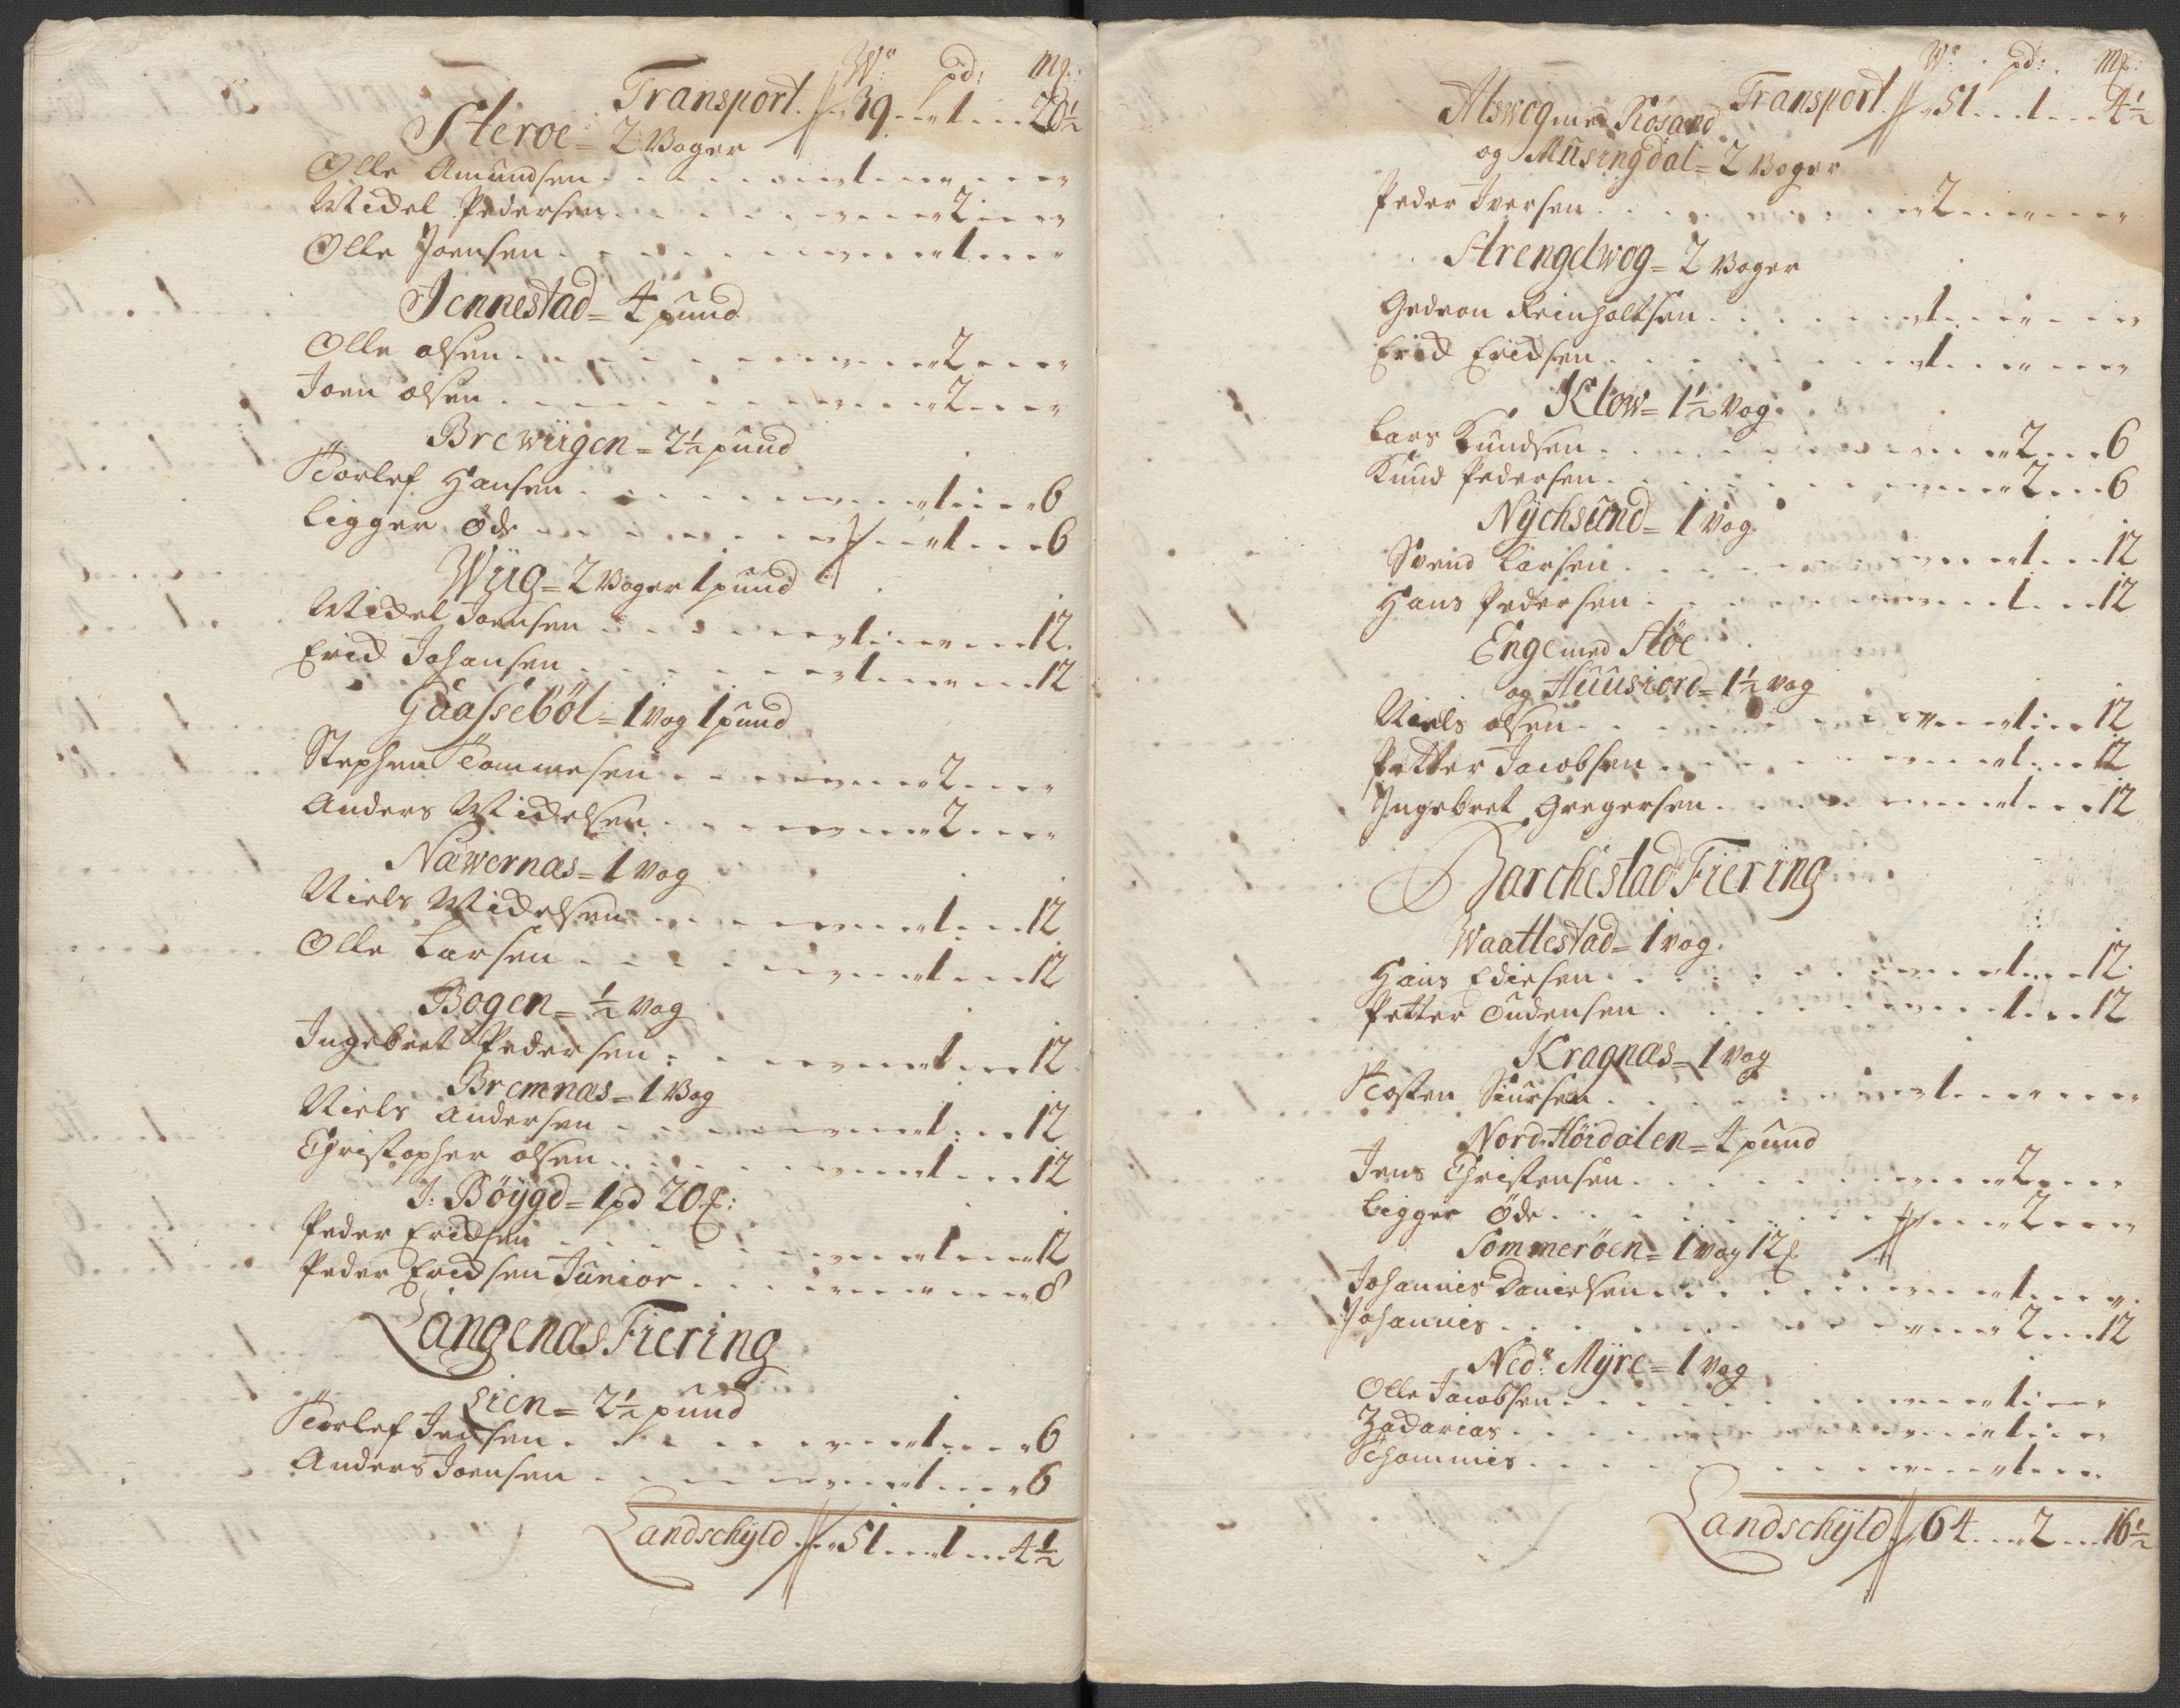 Wr pd: Mg:
Transport. 39 . . . 1 . . . 20½
Steroe = 2 Voger
Olle Amundsen . . . 1 . . .
Michel Pedersen . . . 2 . . .
Olle Joensen . . . 1 . . .
Jennestad = 4 pund
Olle olsen . . . 2 . . .
Joen olsen . . . 2 . . .
Brewiigen = 2½ pund
Torlef Hansen . . . 1 . . . 6
Ligger Øde . . . 1 . . . 6
Wiig = 2 Voger 1 pund
Michel Joensen . . . 1 . . . 12
Erich Johansen . . . 1 . . . 12
Guasseböl = 1 vog 1 pund
Stephen Tommesen . . . 2 . . .
Anders Michelsen . . . 2 . . .
Nawernæs = 1 vog
Niels Michelsen . . . 1 . . . 12
Olle Larsen . . . 1 . . . 12
Bogen = ½ vog
Ingebret Pedersen . . . 1 . . . 12
Bremnæs = 1 Vog
Niels Andersen . . . 1 . . . 12
Christopher olsen . . . 1 . . . 12
J: Böygd = 1 pd 20
Peder Erichsen . . . 1 . . . 12
Peder Erichsen Junior . . . 8
Langenæs Fiering
Lien = 2½ pund
Torlef Jensen . . . 1 . . . 6
Anders Joensen . . . 1 . . . 6
Landschyld . . . 51 . . . 1 . . . 4½
Wr pd: Mg:
Transport. 51 . . . 1 . . . 4½
Alswog med Rösand
og Musingdal = 2 Voger
Peder Iversen . . . 2 . . .
Strengelwog = 2 Voger
Gedeon Reinholtsen . . . 1 . . .
Erich Erichsen . . . 1 . . .
Klow = 1½ vog
Lars Knudsen . . . 2 . . . 6
Knud Pedersen . . . 2 . . . 6
Nychsund = 1 vog
Svend Larsen . . . 1 . . . 12
Hans Pedersen . . . 1 . . . 12
Enge med Stöe
og Huusiord = 1½ vog
Niels olsen . . . 1 . . . 12
Petter Jacobsen . . . 1 . . . 12
Ingebret Gregersen . . . 1 . . . 12
Barchestad Fiering
Waattestad = 1 vog.
Hans Edissen . . . 1 . . . 12
Petter Oudensen . . . 1 . . . 12
Kragnæs = 1 vog
Tosten Siursen . . . 1 . . .
Nord Höidalen = 4 pund
Jens Christensen . . . 2 . . .
Ligger Öde . . . 2 . . .
Sommeröen = 1 vog 12
Johannis Danielsen . . . 1 . . .
Johannis . . . 2 . . . 12
Nedr Myre = 1 vog
Olle Jacobsen . . . 1 . . .
Zacharias . . . 1 . . .
Thommis . . . 1 . . .
Landschyld 64 . . . 2 . . . 16½